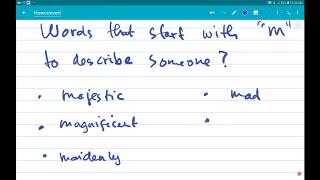 Howconvert
Words that start with "m"
to describe someone?
• majestic
• magnificent
• maidenly
• mad
•